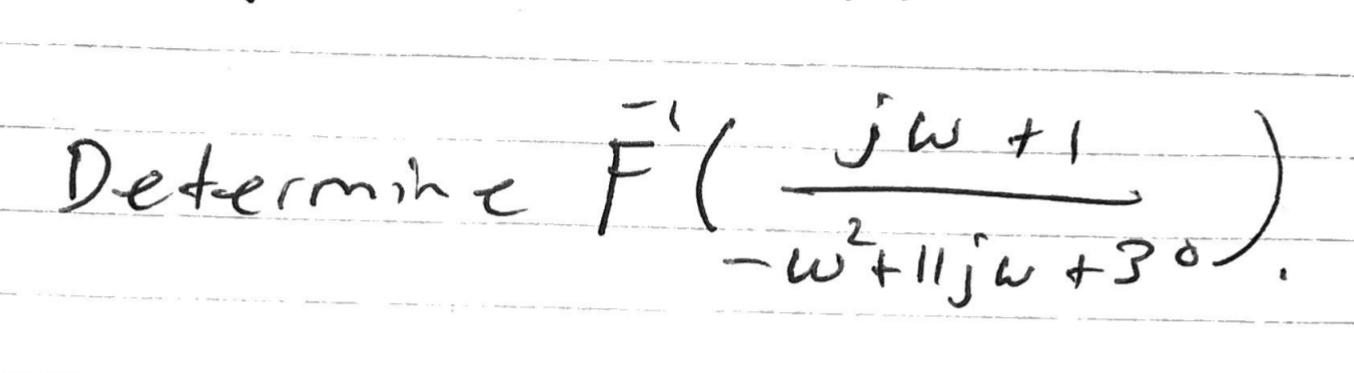 Determine F^{-1}( \frac{jω + 1}{-ω^2 + 11jω + 30} ).